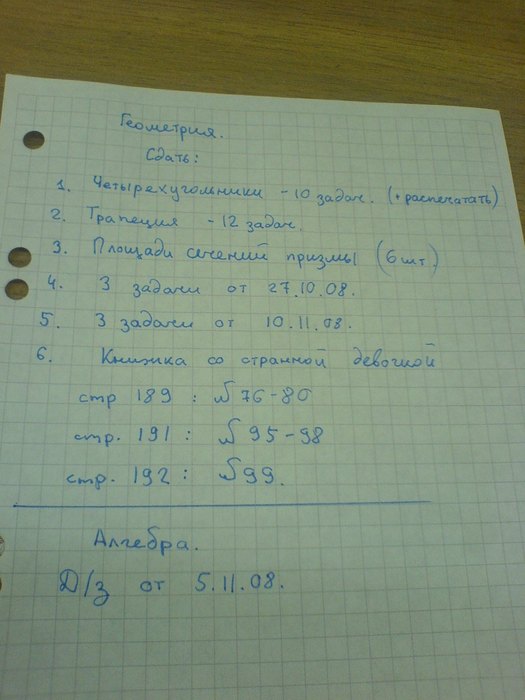 Геометрия.
Сдать:
1. Четырехугольники - 10 задач. (+ распечатать)
2. Трапеция - 12 задач.
3. Площади сечений призмы (6 шт)
4. 3 задачи от 27.10.08.
5. 3 задачи от 10.11.08.
6. Книжка со странной девочкой
стр 189 : № 76-80
стр. 191 : № 95-98
стр. 192 : № 99.
Алгебра.
Д/з от 5.11.08.